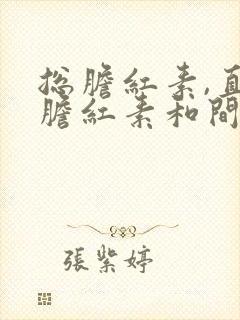 总膽紅素,直
膽紅素和間
張紫婷